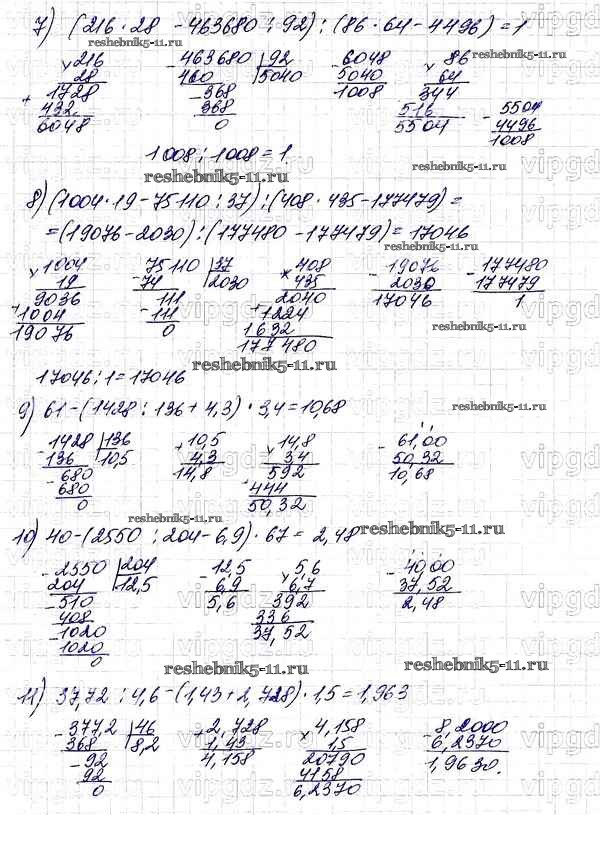 7) (216 · 28 - 463680 : 92) : (86 · 64 - 4496) = 1
reshebnik5-11.ru reshebnik5-11.ru
216 463680 92 6048 86
28 460 5040 5040 64
1728 368 1008 344
432 368 516 5504
6048 0 5504 4496
1008
1008 : 1008 = 1
reshebnik5-11.ru reshebnik5-11.ru
8) (1004 · 19 - 75110 : 37) : (408 · 435 - 177479) =
= (19076 - 2030) : (177480 - 177479) = 17046
1004 75110 37 408 19076 177480
19 74 2030 435 2030 177479
9036 111 2040 17046 1
1004 111 1224
19076 0 1632
177480
reshebnik5-11.ru
reshebnik5-11.ru
17046 : 1 = 17046
9) 61 - (1428 : 136 + 4,3) · 3,4 = 10,68
reshebnik5-11.ru
1428 136 10,5 14,8 61,00
136 10,5 4,3 3,4 50,32
680 14,8 592 10,68
680 444
0 50,32
reshebnik5-11.ru
10) 40 - (2550 : 204 - 6,9) · 67 = 2,48
reshebnik5-11.ru
2550 204 12,5 5,6 40,00
204 12,5 6,9 6,7 37,52
510 5,6 392 2,48
408 336
1020 37,52
1020
0
reshebnik5-11.ru
reshebnik5-11.ru
11) 37,72 : 4,6 - (1,43 + 2,728) · 1,5 = 1,963
377,2 46 2,728 4,158 8,2000
368 8,2 1,43 1,5 6,2370
92 4,158 20790 1,9630.
92 4158
0 6,2370